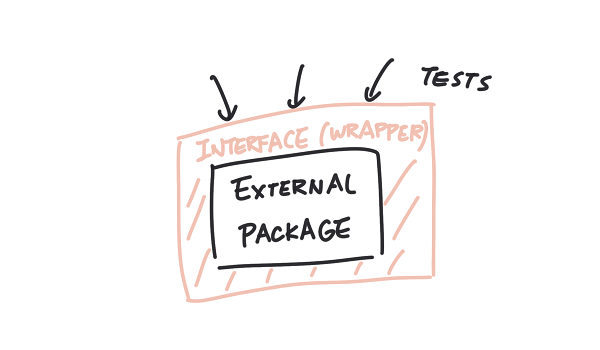 TESTS
INTERFACE (WRAPPER)
EXTERNAL
PACKAGE